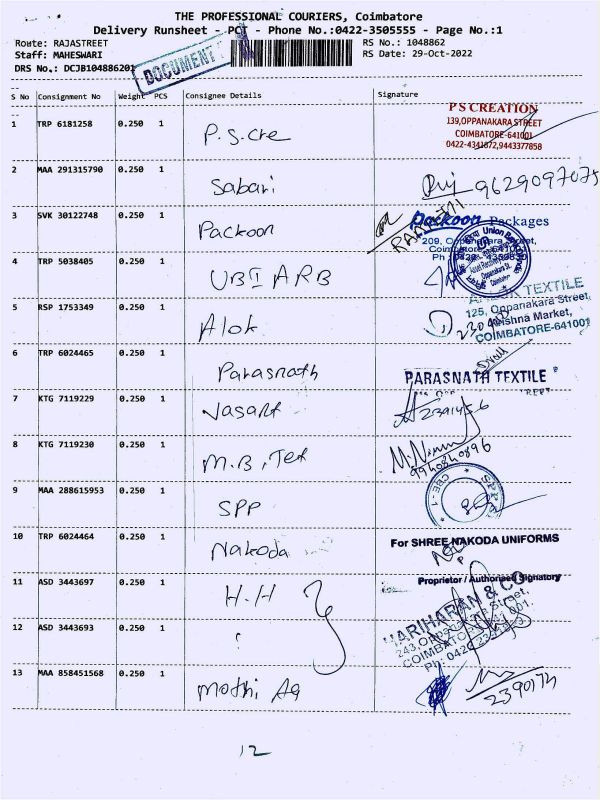 THE PROFESSIONAL COURIERS, Coimbatore
Delivery Runsheet - PCT - Phone No.:0422-3505555 - Page No.:1
Route: RAJASTREET RS No.: 1048862
Staff: MAHESWARI RS Date: 29-Oct-2022
DRS No.: DCJB104886201
DOCUMENT
S No Consignment No Weight PCS Consignee Details Signature
1 TRP 6181258 0.250 1 P.S.Cre
P S CREATION
139,OPPANAKARA STREET
COIMBATORE-641001
0422-4341872,9443377858
2 MAA 291315790 0.250 1 Sabari 9629097075
3 SVK 30122748 0.250 1 Packoon
Packoon Packages
209, Oppanakara Street,
4 TRP 5038405 0.250 1 UBI ARB
Union Bank
5 RSP 1753349 0.250 1 Alok
TEXTILE
125, Oppanakara Street,
Krishna Market,
COIMBATORE-641001
6 TRP 6024465 0.250 1 Parasnath
PARASNATH TEXTILE
7 KTG 7119229 0.250 1 Vasant 2391456
8 KTG 7119230 0.250 1 M.B, Tex
9940840896
9 MAA 288615953 0.250 1 SPP
SPP
CBE - 1
10 TRP 6024464 0.250 1 Nakoda
For SHREE NAKODA UNIFORMS
Proprietor / Authorised Signatory
11 ASD 3443697 0.250 1 H.H
HARIHARAN & CO
12 ASD 3443693 0.250 1
13 MAA 858451568 0.250 1 Mothi Ag
2390174
12